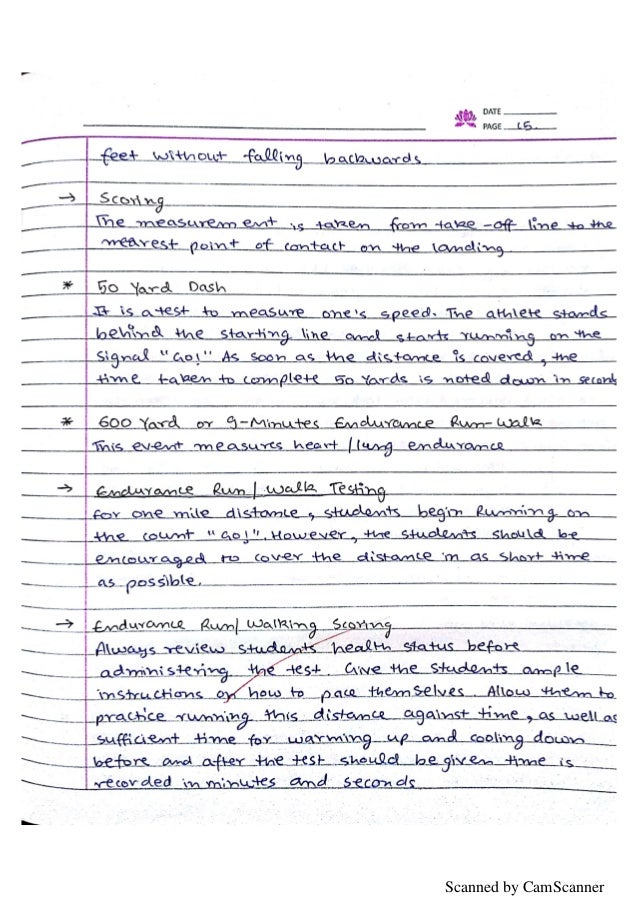 DATE
PAGE 15
feet without falling backwards
→ Scoring
The measurement is taken from take-off line to the
nearest point of contact on the landing
* 50 Yard Dash
It is a test to measure one's speed. The athlete stands
behind the starting line and starts running on the
signal "Go!" As soon as the distance is covered, the
time taken to complete 50 Yards is noted down in seconds
* 600 Yard or 9-Minutes Endurance Run-Walk
This event measures heart / lung endurance
→ Endurance Run / Walk Testing
For one mile distance, students begin Running on
the count "Go!". However, the students should be
encouraged to cover the distance in as short time
as possible.
→ Endurance Run / Walking Scoring
Always review students health status before
administering the test. Give the students ample
instructions on how to pace themselves. Allow them to
practice running this distance against time, as well as
sufficient time for warming up and cooling down
before and after the test should be given time is
recorded in minutes and seconds
Scanned by CamScanner